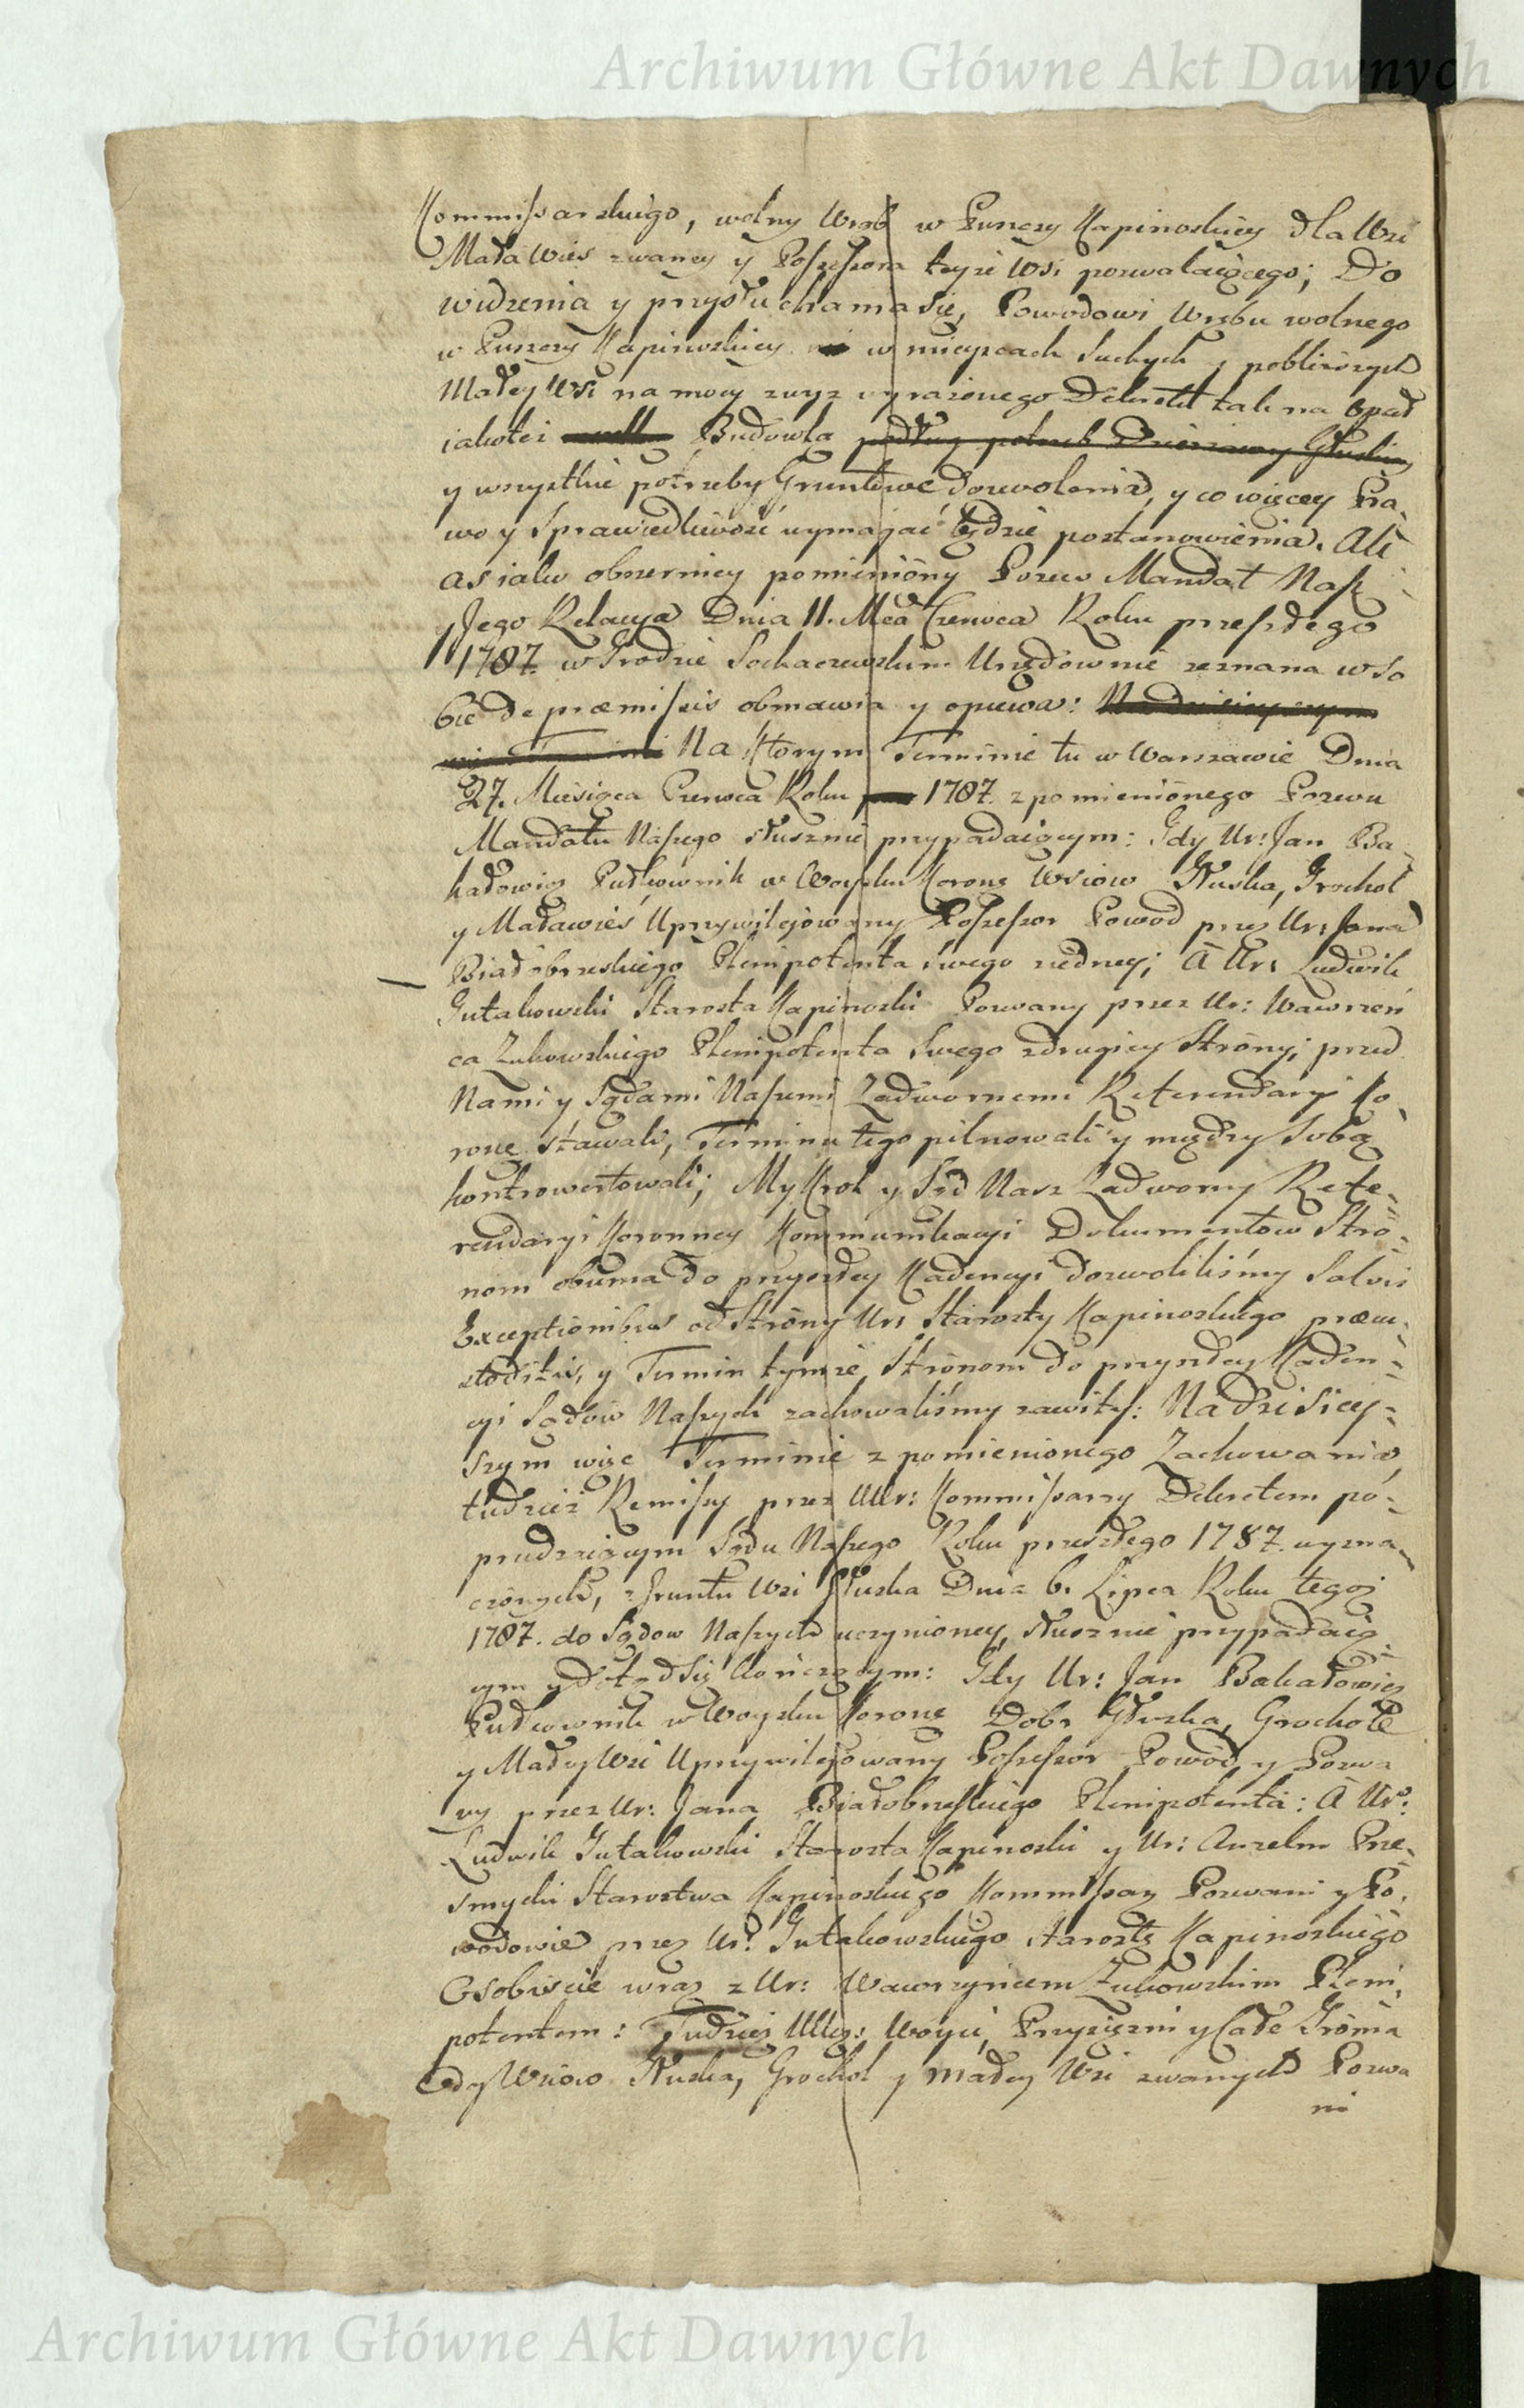 Archiwum Główne Akt Dawnych
Kommissarskiego, wolny Wrąb w Puszczy Kapinoskiey dla Wsi
Mała Wieś zwaney y Possessora teyże Wsi pozwalaiącego; Do
widzenia y przysłuchania się, Powodowi Wrębu wolnego
w Puszczy Kapinoskiey w mieyscach suchych y pobliższych
Małey Wsi na mocy zwyż wyrażonego Dekretu tak na Opał
iakoteż Budowlą podług potrzeb Dzierżawy Głuska
y wszystkie potrzeby Gruntowe dozwolenia, y co więcey Pra-
wo y Sprawiedliwość wymagać będzie postanowienia. Ali
as iako obszerniey pomieniony Pozew Mandat Nasz
Jego Relacya Dnia 11. Mca Czerwca Roku przeszłego
1787. w Grodzie Sochaczewskim Urzędownie zeznana w so
bie de præmissis obmawia y opiewa: Na dzisieyszym
Terminie Na Ktorym Terminie tu w Warszawie Dnia
27. Miesiąca Czerwca Roku 1787. z pomienionego Pozwu
Mandatu Naszego słusznie przypadaiącym: Gdy Ur: Jan Ba-
kałowicz Pułkownik w Woysku Koronę Wsiow Głuska, Grochol
y Maławieś Uprzywilejowany Possessor Powod przez Ur: Jana
Białobrzeskiego Plenipotenta swego zedney; A Ur: Ludwik
Gutakowski Starosta Kapinoski Pozwany przez Ur: Wawrzeń
ca Żukowskiego Plenipotenta swego zdrugiey Strony; przed
Nami y Sądami Naszemi Zadwornemi Referendaryi Ko-
ronę stawali, Terminu tego pilnowali y między sobą
kontrowertowali; My Krol y Sąd Nasz Zadworny Refe-
rendaryi Koronney Kommunikacyi Dokumentow Stro-
nom obuma do przyszłey Kadencyi dozwoliliśmy Salvis
Exceptionibus od Strony Ur: Starosty Kapinoskiego præcu-
stoditis, y Termin tymże Stronom do przyszłey Kaden-
cyi Sądow Naszych zachowaliśmy zawity: Na dzisiey-
szym więc Terminie z pomienionego Zachowania,
tudzież Remissy przez UUr: Kommissarzy Dekretem po-
przedzaiącym Sądu Naszego Roku przeszłego 1787. wyzna-
czonych, z Gruntu Wsi Głuska Dnia 6. Lipca Roku tegoż
1787. do Sądow Naszych uczynioney, słusznie przypadaią
cym y dotąd się kończącym: Gdy Ur: Jan Bakałowicz
Pułkownik w Woysku Koronę Dobr Głuska, Grochole
y Małey Wsi Uprzywilejowany Possessor Powod y Pozwa
ny przez Ur: Jana Białobrzeskiego Plenipotenta: A Ur:
Ludwik Gutakowski Starosta Kapinoski y Ur: Anzelm Prze-
smycki Starostwa Kapinoskiego Kommissarz Pozwani y Po-
wodowie przez Ur: Gutakowskiego Starostę Kapinoskiego
Osobiście wraz z Ur: Wawrzyńcem Żukowskim Pleni-
potentem: Tudzież Woyci, Przysiężni y Całe Groma
dy Wsiow Głuska, Grochol y Małey Wsi zwanych Pozwa
ni
Archiwum Główne Akt Dawnych